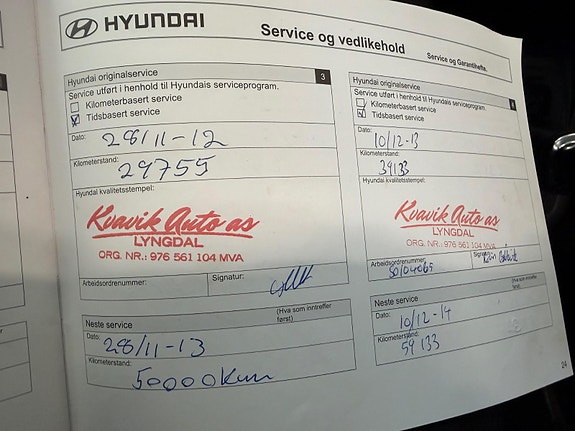 HYUNDAI
Service og vedlikehold
Service og Garantihefte
Hyundai originalservice
3
Service utført i henhold til Hyundais serviceprogram.
Kilometerbasert service
Tidsbasert service
Dato:
28/11-12
Kilometerstand:
29755
Hyundai kvalitetsstempel:
Kvavik Auto as
LYNGDAL
ORG. NR.: 976 561 104 MVA
Arbeidsordrenummer:
Signatur:
Neste service
(Hva som inntreffer
først)
Dato:
28/11-13
Kilometerstand:
50000Km
Hyundai originalservice
Service utført i henhold til Hyundais serviceprogram.
Kilometerbasert service
Tidsbasert service
Dato:
10/12-13
Kilometerstand:
39133
Hyundai kvalitetsstempel:
Kvavik Auto as
LYNGDAL
ORG. NR.: 976 561 104 MVA
Arbeidsordrenummer:
Signatur:
Neste service
(Hva som inntreffer
først)
Dato:
10/12-14
Kilometerstand:
59133
24